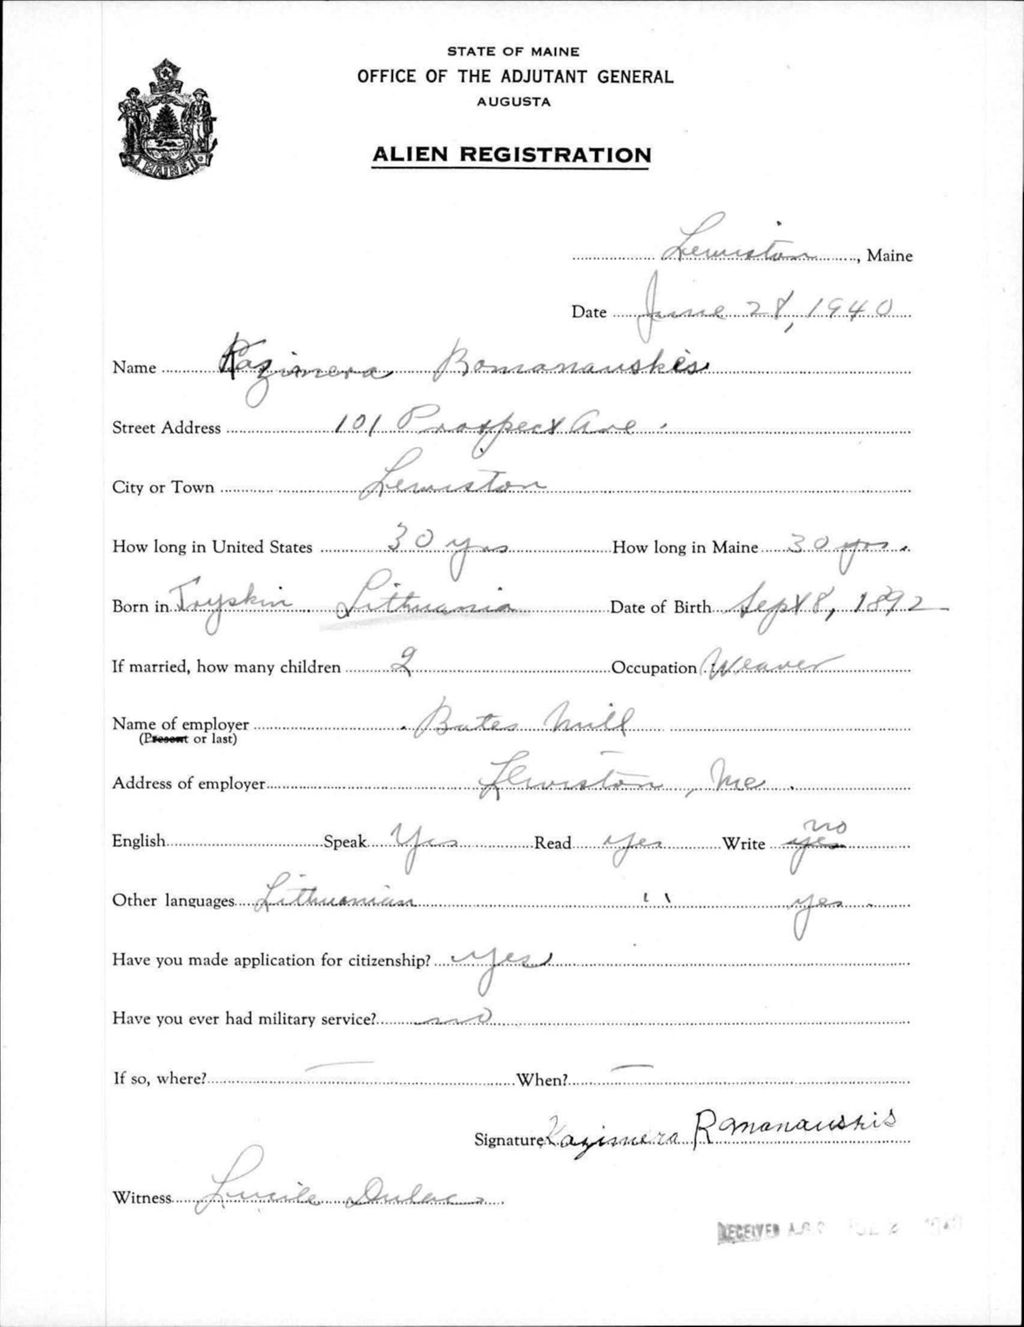 STATE OF MAINE
OFFICE OF THE ADJUTANT GENERAL
AUGUSTA
ALIEN REGISTRATION
MAINE
Lewiston, Maine
Date June 28, 1940
Name Kazimera Romanauskis
Street Address 101 Prospect Ave.
City or Town Lewiston
How long in United States 30 yrs How long in Maine 30 yrs.
Born in Tryskin Lithuania Date of Birth Sept 8, 1892
If married, how many children 2 Occupation Weaver
Name of employer Bates Mill
(Present or last)
Address of employer Lewiston, Me.
English Speak Yes Read yes Write yes no
Other languages Lithuanian " yes.
Have you made application for citizenship? yes
Have you ever had military service? no
If so, where? — When? —
Signature Kazimera Romanauskis
Witness Lucile Dulac
RECEIVED A.G.O. 1940